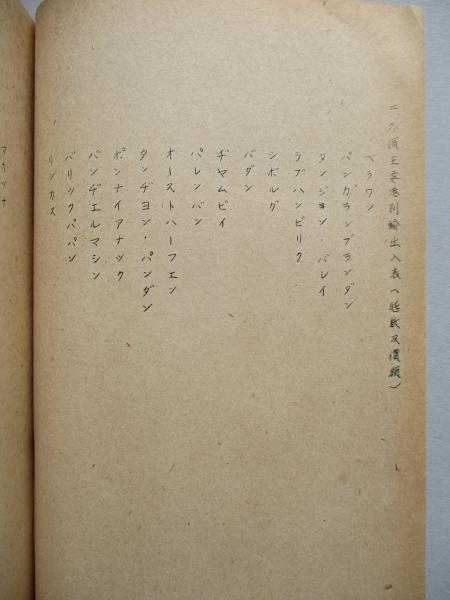 二、外領主要港別輸出入表(噸数及價額)
ベラワン
パンガランブランダン
タンジョン・バレイ
ラブハンビリク
シボルグ
パダン
ヂヤムビイ
パレンバン
オーストハーフェン
タンヂヨン・パンダン
ポンナイアナック
バンヂエルマシン
バリックパパン
リンカス
マカッサ